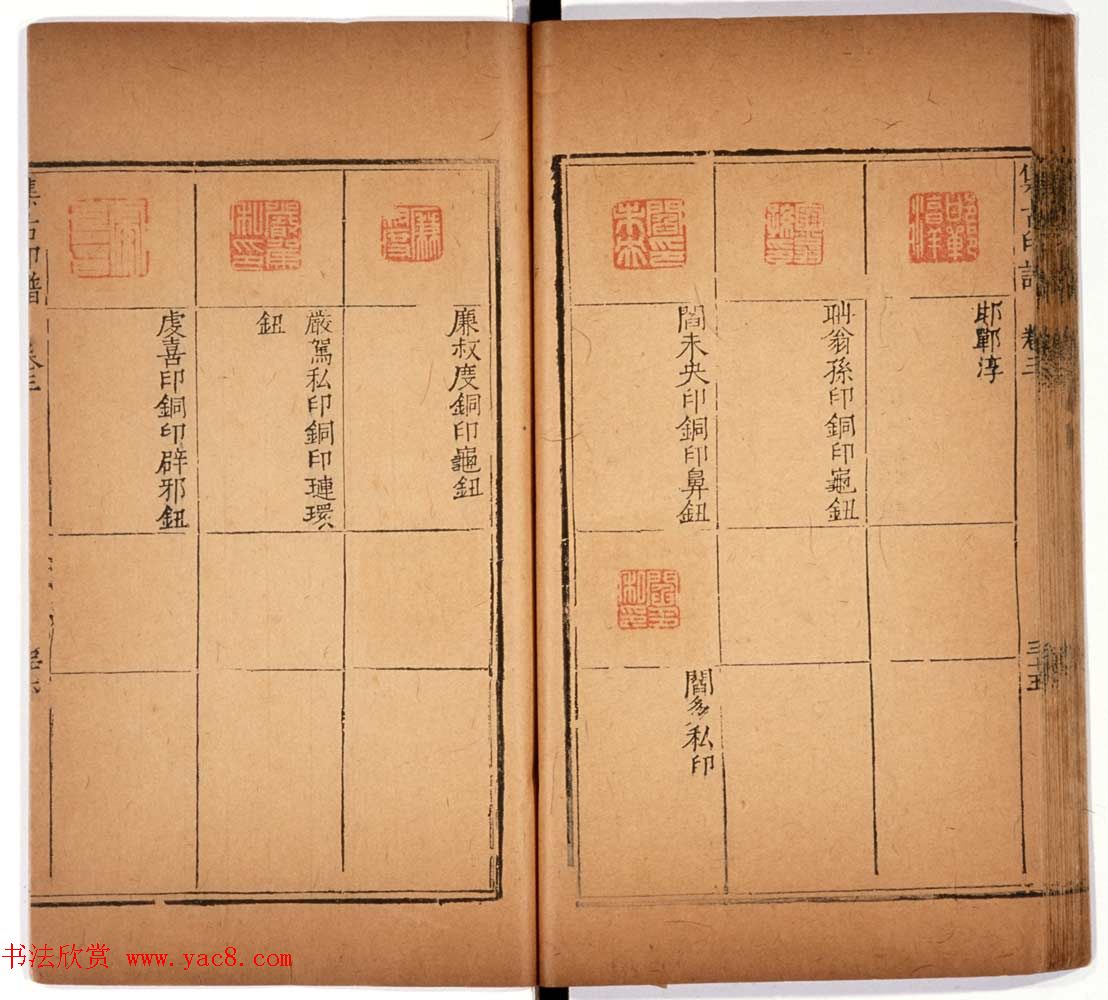 集古印譜 卷三
三十五
邯鄲淳
耼翁孫印銅印龜鈕
閻未央印銅印鼻鈕
閻多私印
廉叔度銅印龜鈕
嚴駕私印銅印璉環
鈕
虔喜印銅印辟邪鈕
集古印譜 卷三
书法欣赏 www.yac8.com